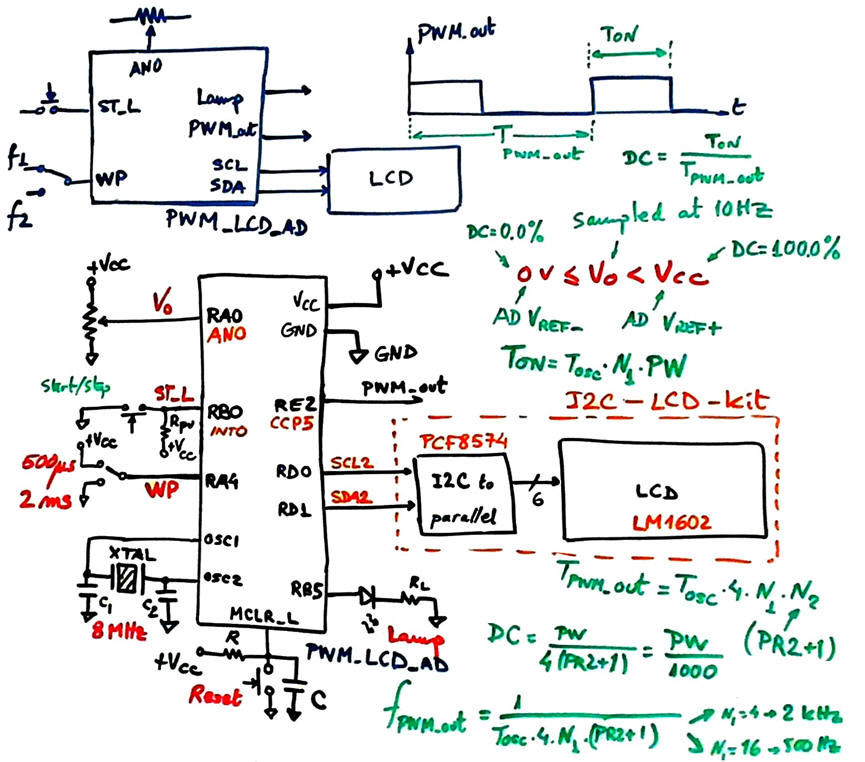 AN0
ST_L
Lamp
PWM_out
f1
f2
WP
SCL
SDA
LCD
PWM_LCD_AD
PWM_out
TON
t
T PWM_out
DC = TON / TPWM_out
sampled at 10Hz
DC=0.0%
DC=100.0%
0 V ≤ Vo < Vcc
AD VREF-
AD VREF+
TON = Tosc · N1 · PW
+Vcc
Vo
RA0
AN0
Vcc
+VCC
GND
GND
Start/Stop
ST_L
RB0
INT0
RPU
+Vcc
RE2
CCP5
PWM_out
+Vcc
500µs
2 ms
WP
RA4
RD0
SCL2
RD1
SDA2
I2C-LCD-kit
PCF8574
I2C to
parallel
6
LCD
LM1602
OSC1
XTAL
OSC2
C1
C2
8 MHz
RB5
RL
Lamp
MCLR_L
PWM_LCD_AD
R
+Vcc
Reset
C
TPWM_out = Tosc · 4 · N1 · N2
(PR2+1)
DC = PW / 4(PR2+1) = PW / 1000
fPWM_out = 1 / Tosc · 4 · N1 · (PR2+1)
N1=4 → 2 kHz
N1=16 → 500 Hz